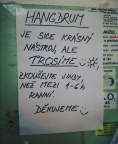 HANGDRUM
JE SICE KRÁSNÝ
NÁSTROJ, ALE
PROSÍME
ZKOUŠEJTE JINDY,
NEŽ MEZI 1-6h
RANNÍ.
DĚKUJEME